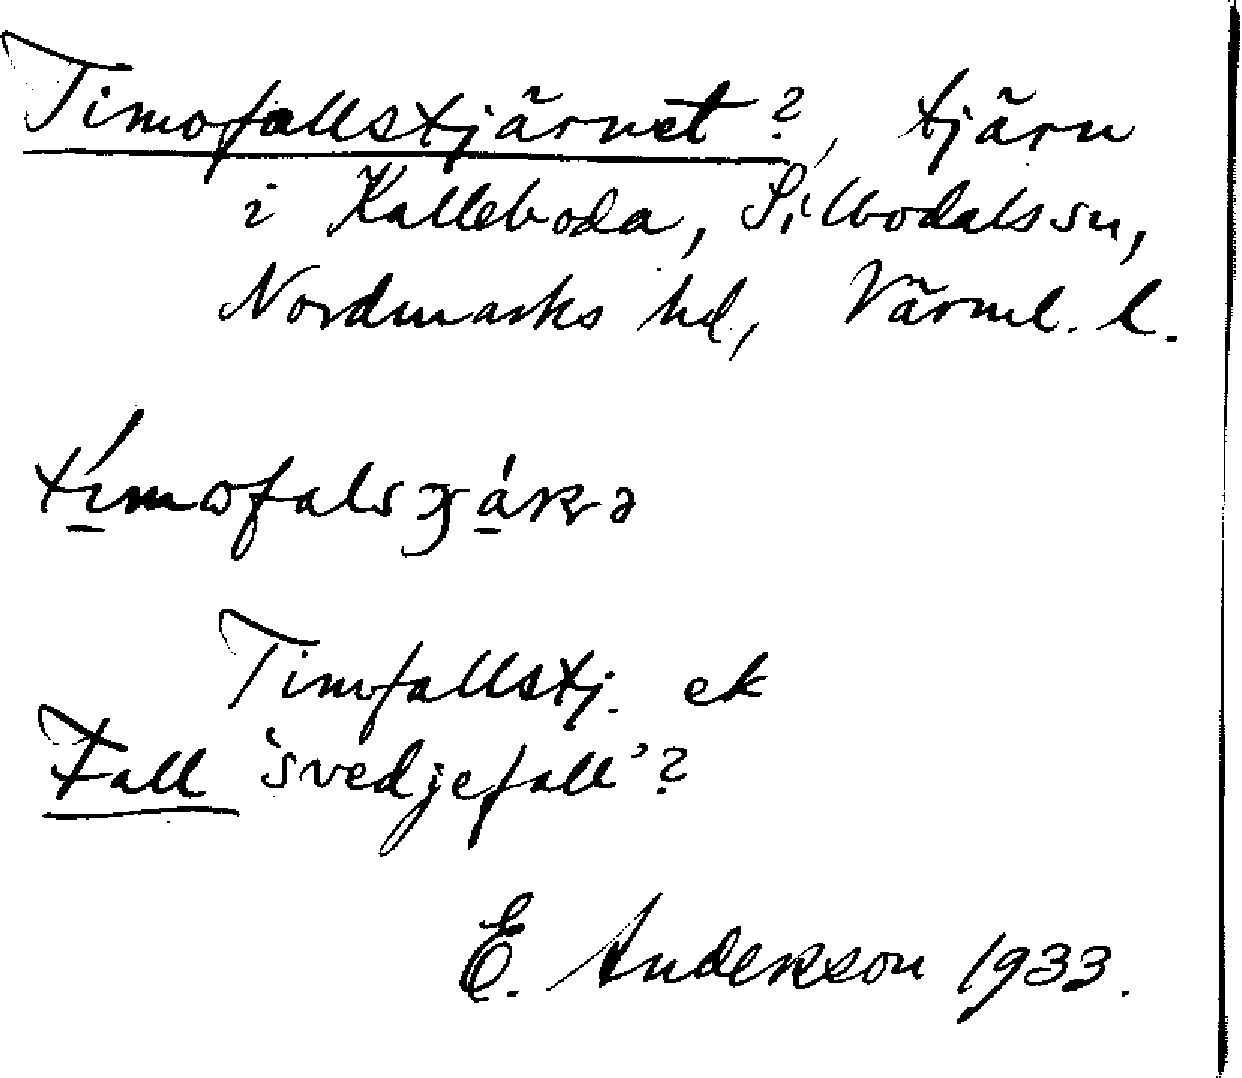 Timofallstjärnet?, tjärn
i Kalleboda, Silbodals sn,
Nordmarks hd, Värml. l.
Timofallstj. ek
Fall 'svedjefall'?
E. Anderson 1933.